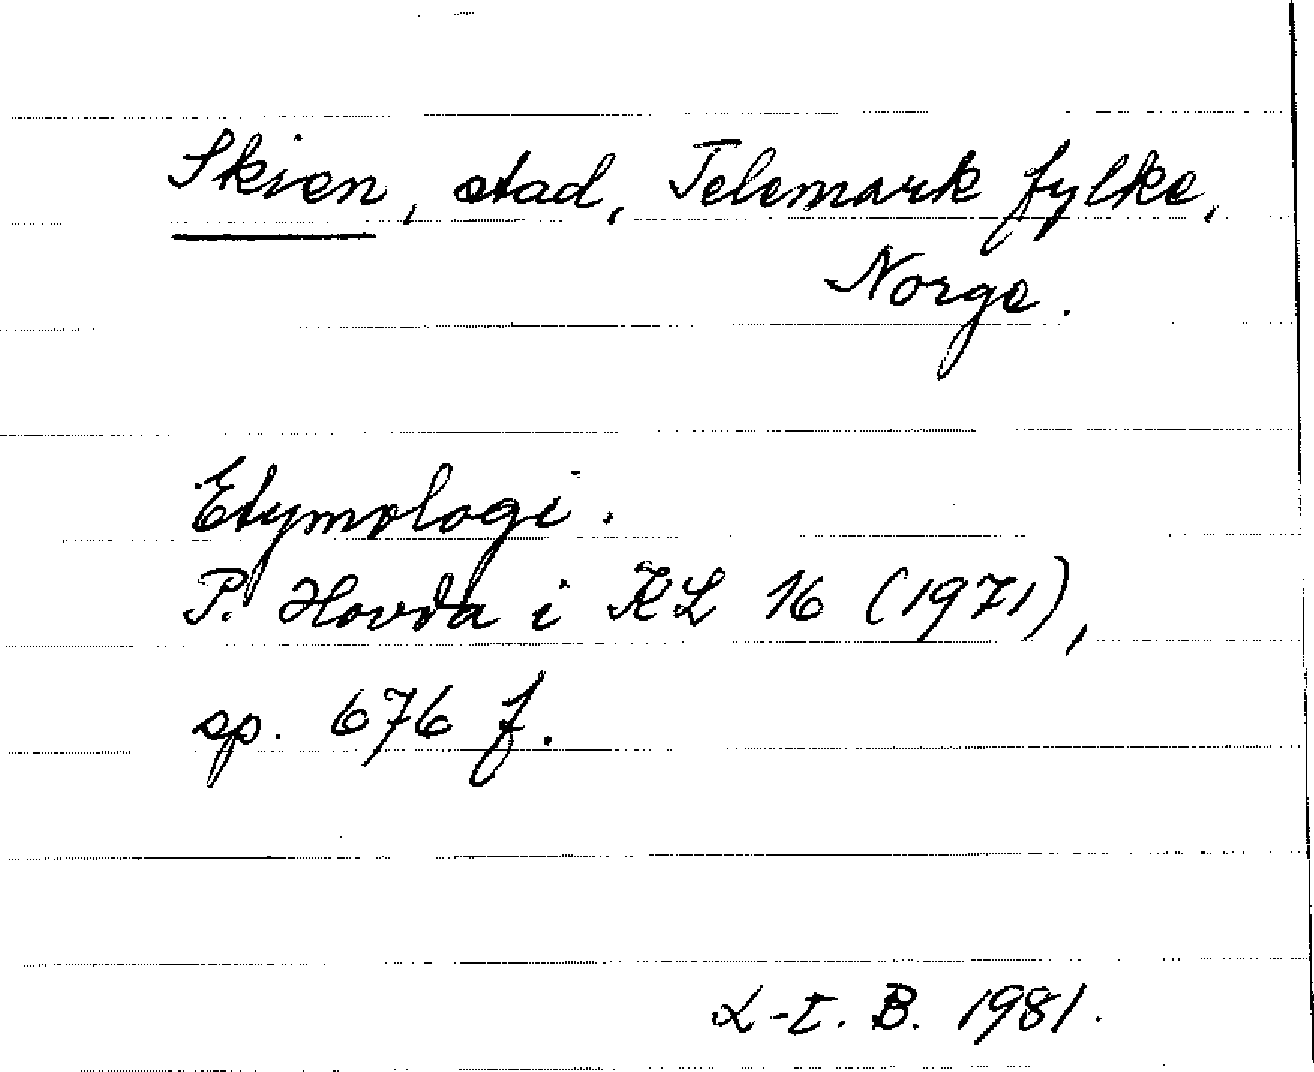 Skien, stad, Telemark fylke,
Norge.
Etymologi.
P. Hovda i KL 16 (1971),
sp. 676 f.
L-E. B. 1981.